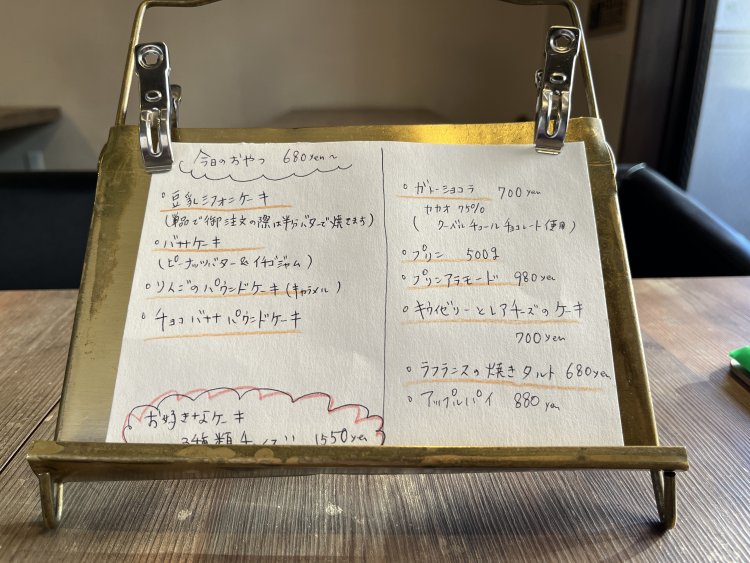 今日のおやつ 680yen~
豆乳シフォンケーキ
(単品で御注文の際は半分バターで焼きます)
バナナケーキ
(ピーナッツバター&イチゴジャム)
りんごのパウンドケーキ(キャラメル)
チョコバナナパウンドケーキ
お好きなケーキ
1550yen
ガトーショコラ 700yen
カカオ75%
(クーベルチュールチョコレート使用)
プリン 500g
プリンアラモード 980yen
キウイゼリーとレアチーズのケーキ
700yen
ラフランスの焼きタルト 680yen
アップルパイ 880yen